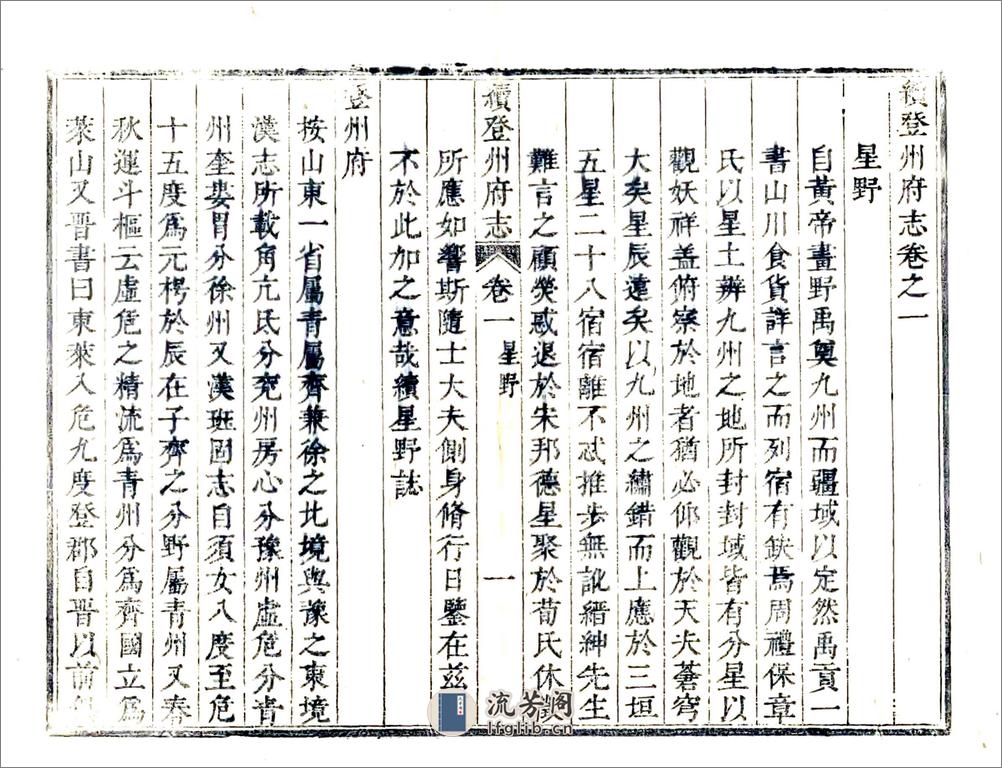 續登州府志卷之一
星野
自黃帝畫野禹奠九州而疆域以定然禹貢一
書山川食貨詳言之而列宿有缺焉周禮保章
氏以星土辨九州之地所封封域皆有分星以
觀妖祥蓋俯察於地者猶必仰觀於天夫蒼穹
大矣星辰遠矣以九州之繡錯而上應於三垣
五星二十八宿宿離不忒推步無訛縉紳先生
難言之顧熒惑退於宋邦德星聚於荀氏休
續登州府志 卷一 星野 一
所應如響斯隨士大夫側身脩行日鑒在茲
不於此加之意哉續星野誌
登州府
按山東一省屬青屬齊兼徐之北境與豫之東境
漢志所載角亢氐分兗州房心分豫州虛危分青
州奎婁胃分徐州又漢班固志自須女八度至危
十五度爲元枵於辰在子齊之分野屬青州又春
秋運斗樞云虛危之精流爲青州分爲齊國立爲
萊山又晉書曰東萊入危九度登郡自晉以前
流芳閣
lfglib.cn